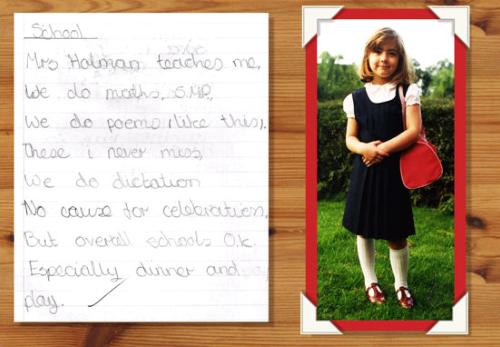 School
Mrs Holman teaches me,
We do maths, S.M.P,
We do poems (like this).
These i never miss,
We do dictation
No cause for celebration,
But overall schools O.k.
Especially dinner and
play.